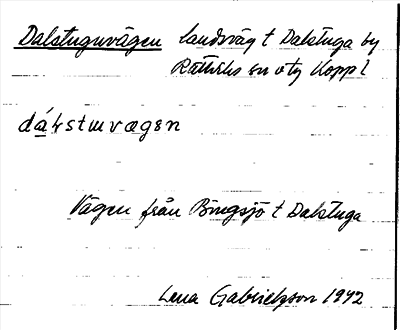 Dalstuguvägen landsväg t Dalstuga by
Rättviks sn o ty Koppl
dálstuvægen
Vägen från Bingsjö t Dalstuga
Lena Gabrielsson 1992